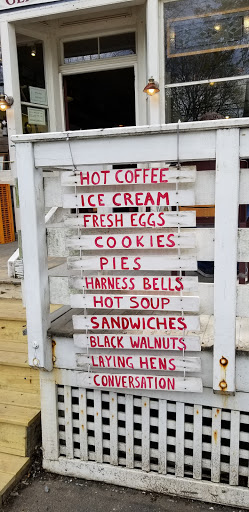 HOT COFFEE
ICE CREAM
FRESH EGGS
COOKIES
PIES
HARNESS BELLS
HOT SOUP
SANDWICHES
BLACK WALNUTS
LAYING HENS
CONVERSATION